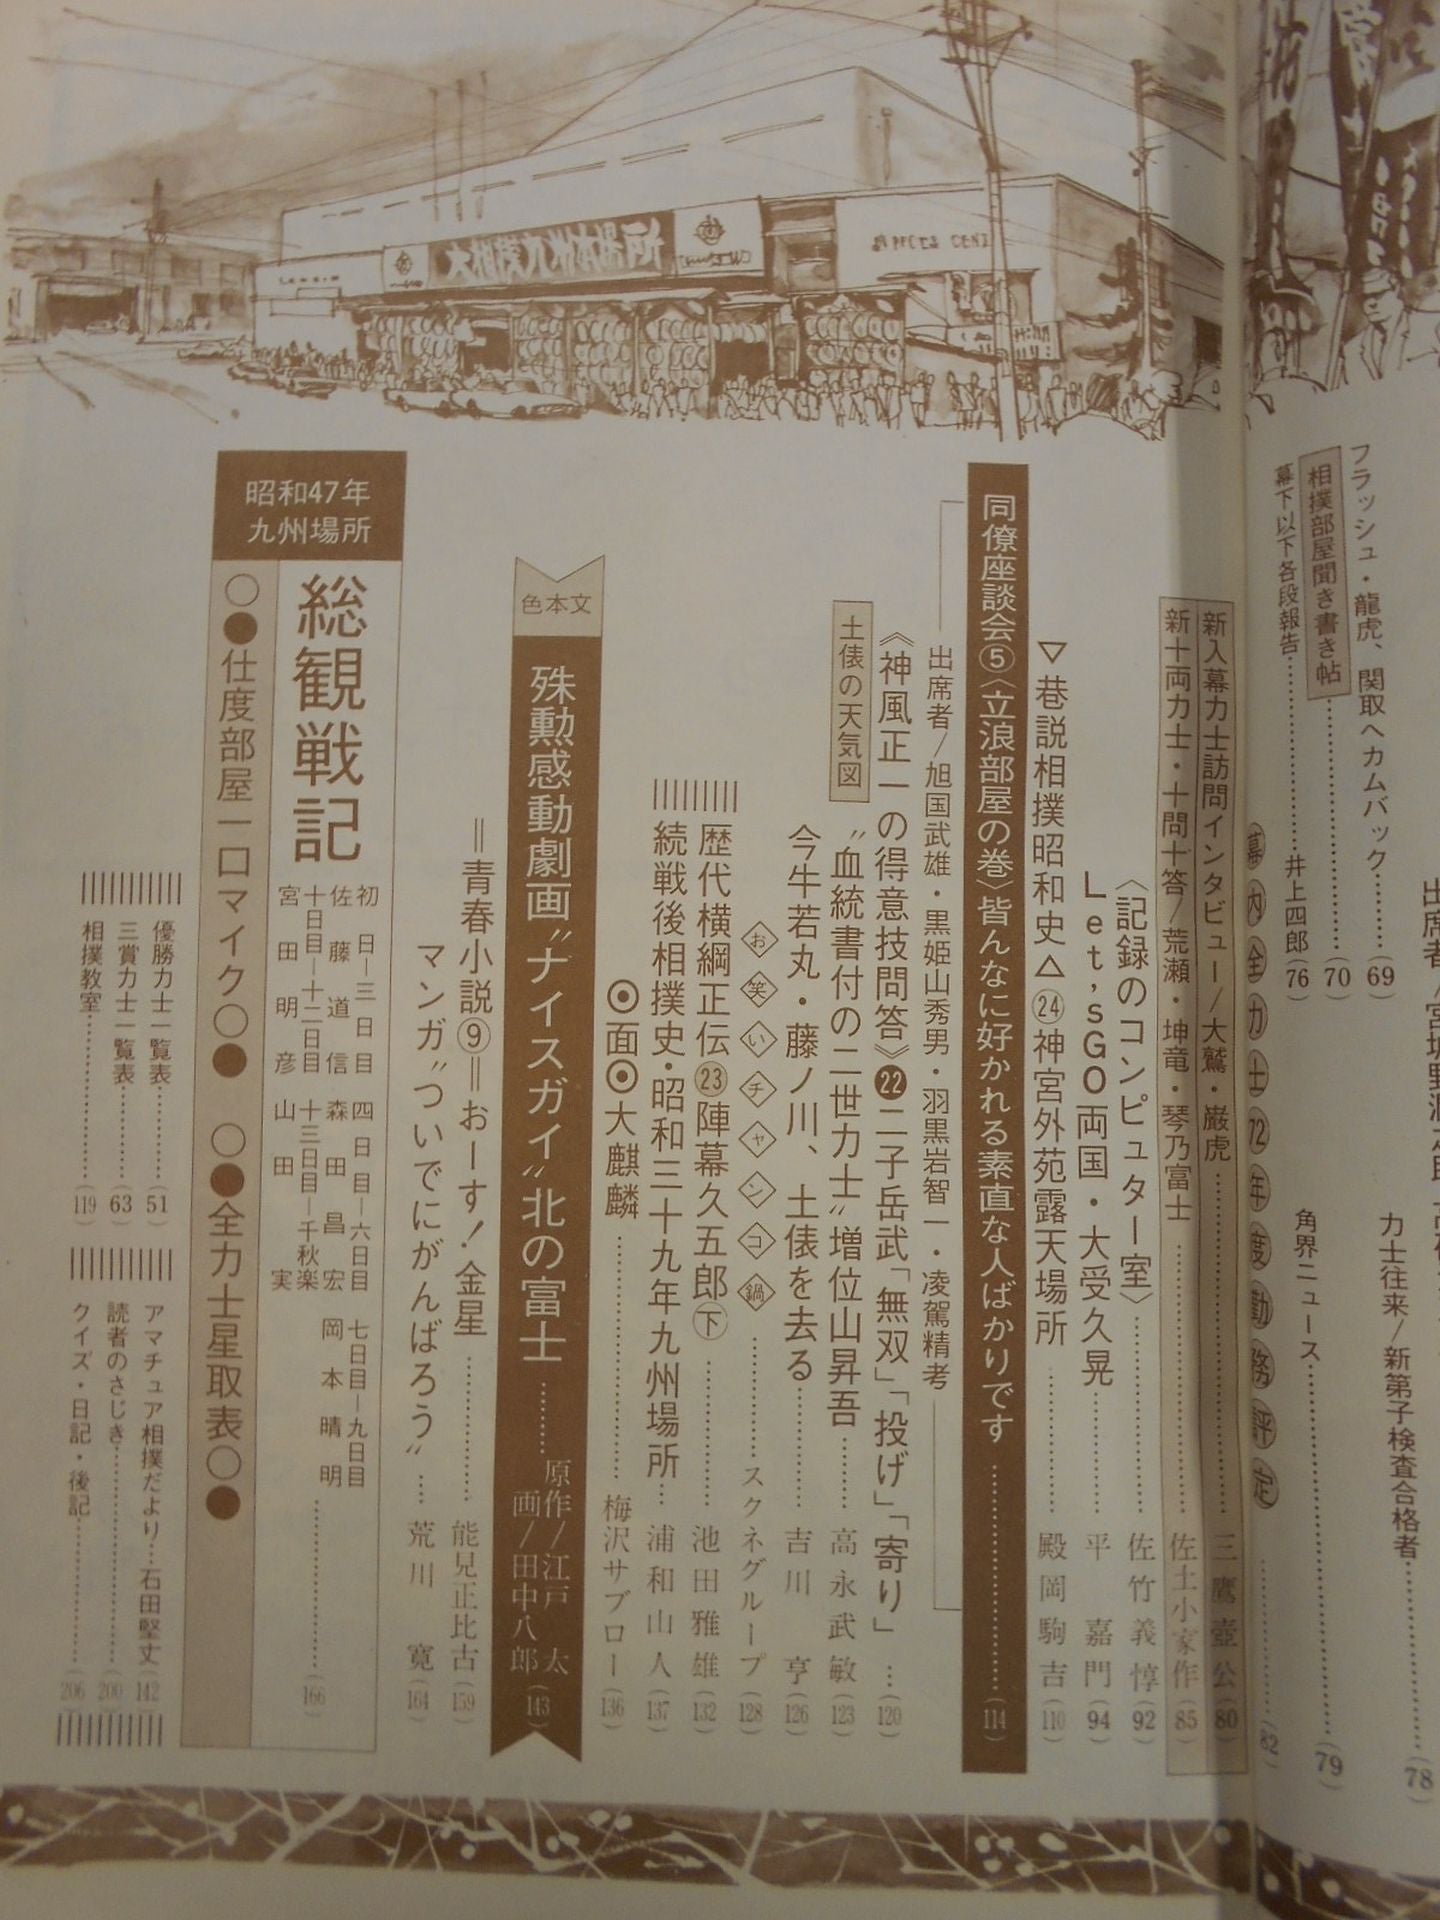 フラッシュ・龍虎、関取へカムバック………(69)
相撲部屋聞き書き帖………(70)
幕下以下各段報告………井上四郎(76)
力士往来/新弟子検査合格者………(78)
角界ニュース………(79)
幕内全力士72年度勤務評定………(82)
大相撲九州本場所
新入幕力士訪問インタビュー/大鷲・巌虎………三鷹壺公(80)
新十両力士・十問十答/荒瀬・坤竜・琴乃富士………佐士小家作(85)
〈記録のコンピュター室〉………佐竹義惇(92)
Let'sGO両国・大受久晃………平嘉門(94)
▽巷説相撲昭和史△㉔神宮外苑露天場所………殿岡駒吉(110)
同僚座談会⑤〈立浪部屋の巻〉皆んなに好かれる素直な人ばかりです………(114)
出席者/旭国武雄・黒姫山秀男・羽黒岩智一・凌駕精考
《神風正一の得意技問答》㉒二子岳武「無双」「投げ」「寄り」…(120)
土俵の天気図
"血統書付の二世力士"増位山昇吾………高永武敏(123)
今牛若丸・藤ノ川、土俵を去る………吉川亨(126)
お笑いチャンコ鍋………スクネグループ(128)
歴代横綱正伝㉓陣幕久五郎㊦………池田雅雄(132)
続戦後相撲史・昭和三十九年九州場所…浦和山人(137)
◎面◎大麒麟………梅沢サブロー(136)
色本文
殊勲感動劇画"ナイスガイ"北の富士………原作/江戸太
画/田中八郎(143)
=青春小説⑨=おーす!金星………能見正比古(159)
マンガ"ついでにがんばろう"…荒川寛(164)
昭和47年
九州場所
総観戦記
初日―三日目 佐藤道信
四日目―六日目 森田昌宏
七日目―九日目 岡本晴明
十日目―十二日目 宮田明彦
十三日目―千秋楽 山田実
………(166)
○●仕度部屋一口マイク○● ○●全力士星取表○●
優勝力士一覧表………(51)
三賞力士一覧表………(63)
相撲教室………(119)
アマチュア相撲だより…石田堅丈(142)
読者のさじき………(200)
クイズ・日記・後記………(206)